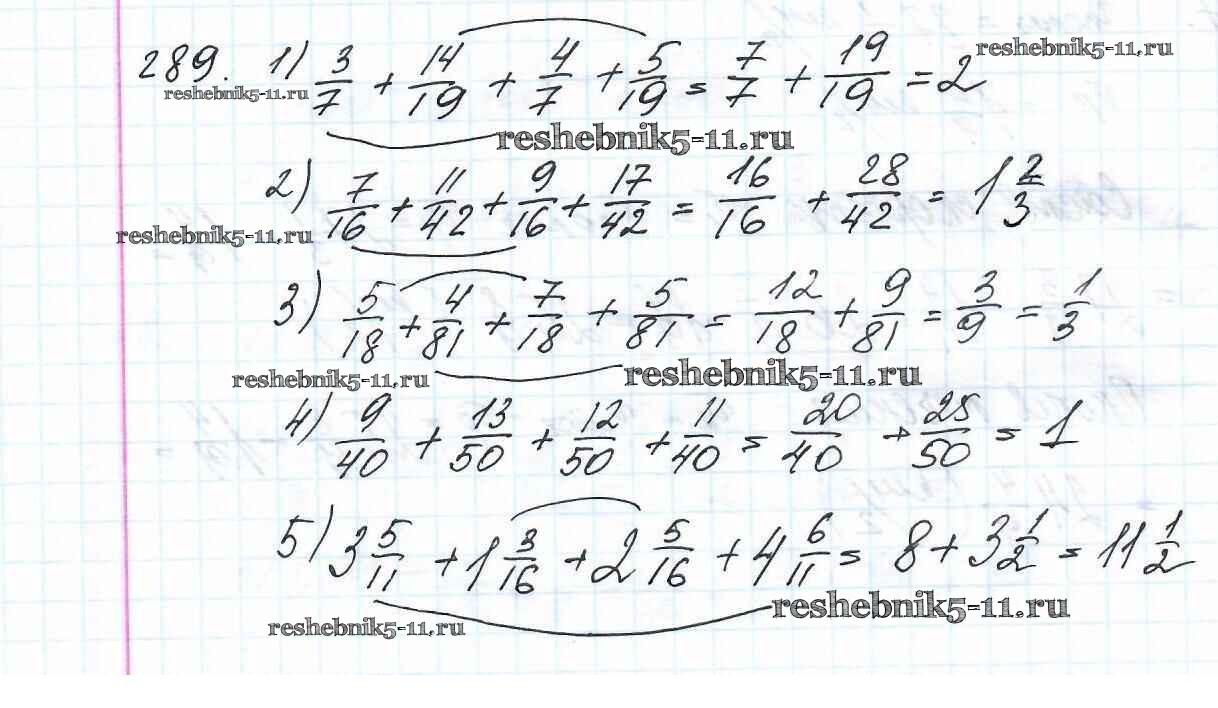 289. 1) 3/7 + 14/19 + 4/7 + 5/19 = 7/7 + 19/19 = 2 reshebnik5-11.ru
reshebnik5-11.ru
reshebnik5-11.ru
2) 7/16 + 11/42 + 9/16 + 17/42 = 16/16 + 28/42 = 1 2/3
reshebnik5-11.ru
3) 5/18 + 4/81 + 7/18 + 5/81 = 12/18 + 9/81 = 3/9 = 1/3
reshebnik5-11.ru reshebnik5-11.ru
4) 9/40 + 13/50 + 12/50 + 11/40 = 20/40 + 25/50 = 1
5) 3 5/11 + 1 3/16 + 2 5/16 + 4 6/11 = 8 + 3 1/2 = 11 1/2
reshebnik5-11.ru reshebnik5-11.ru